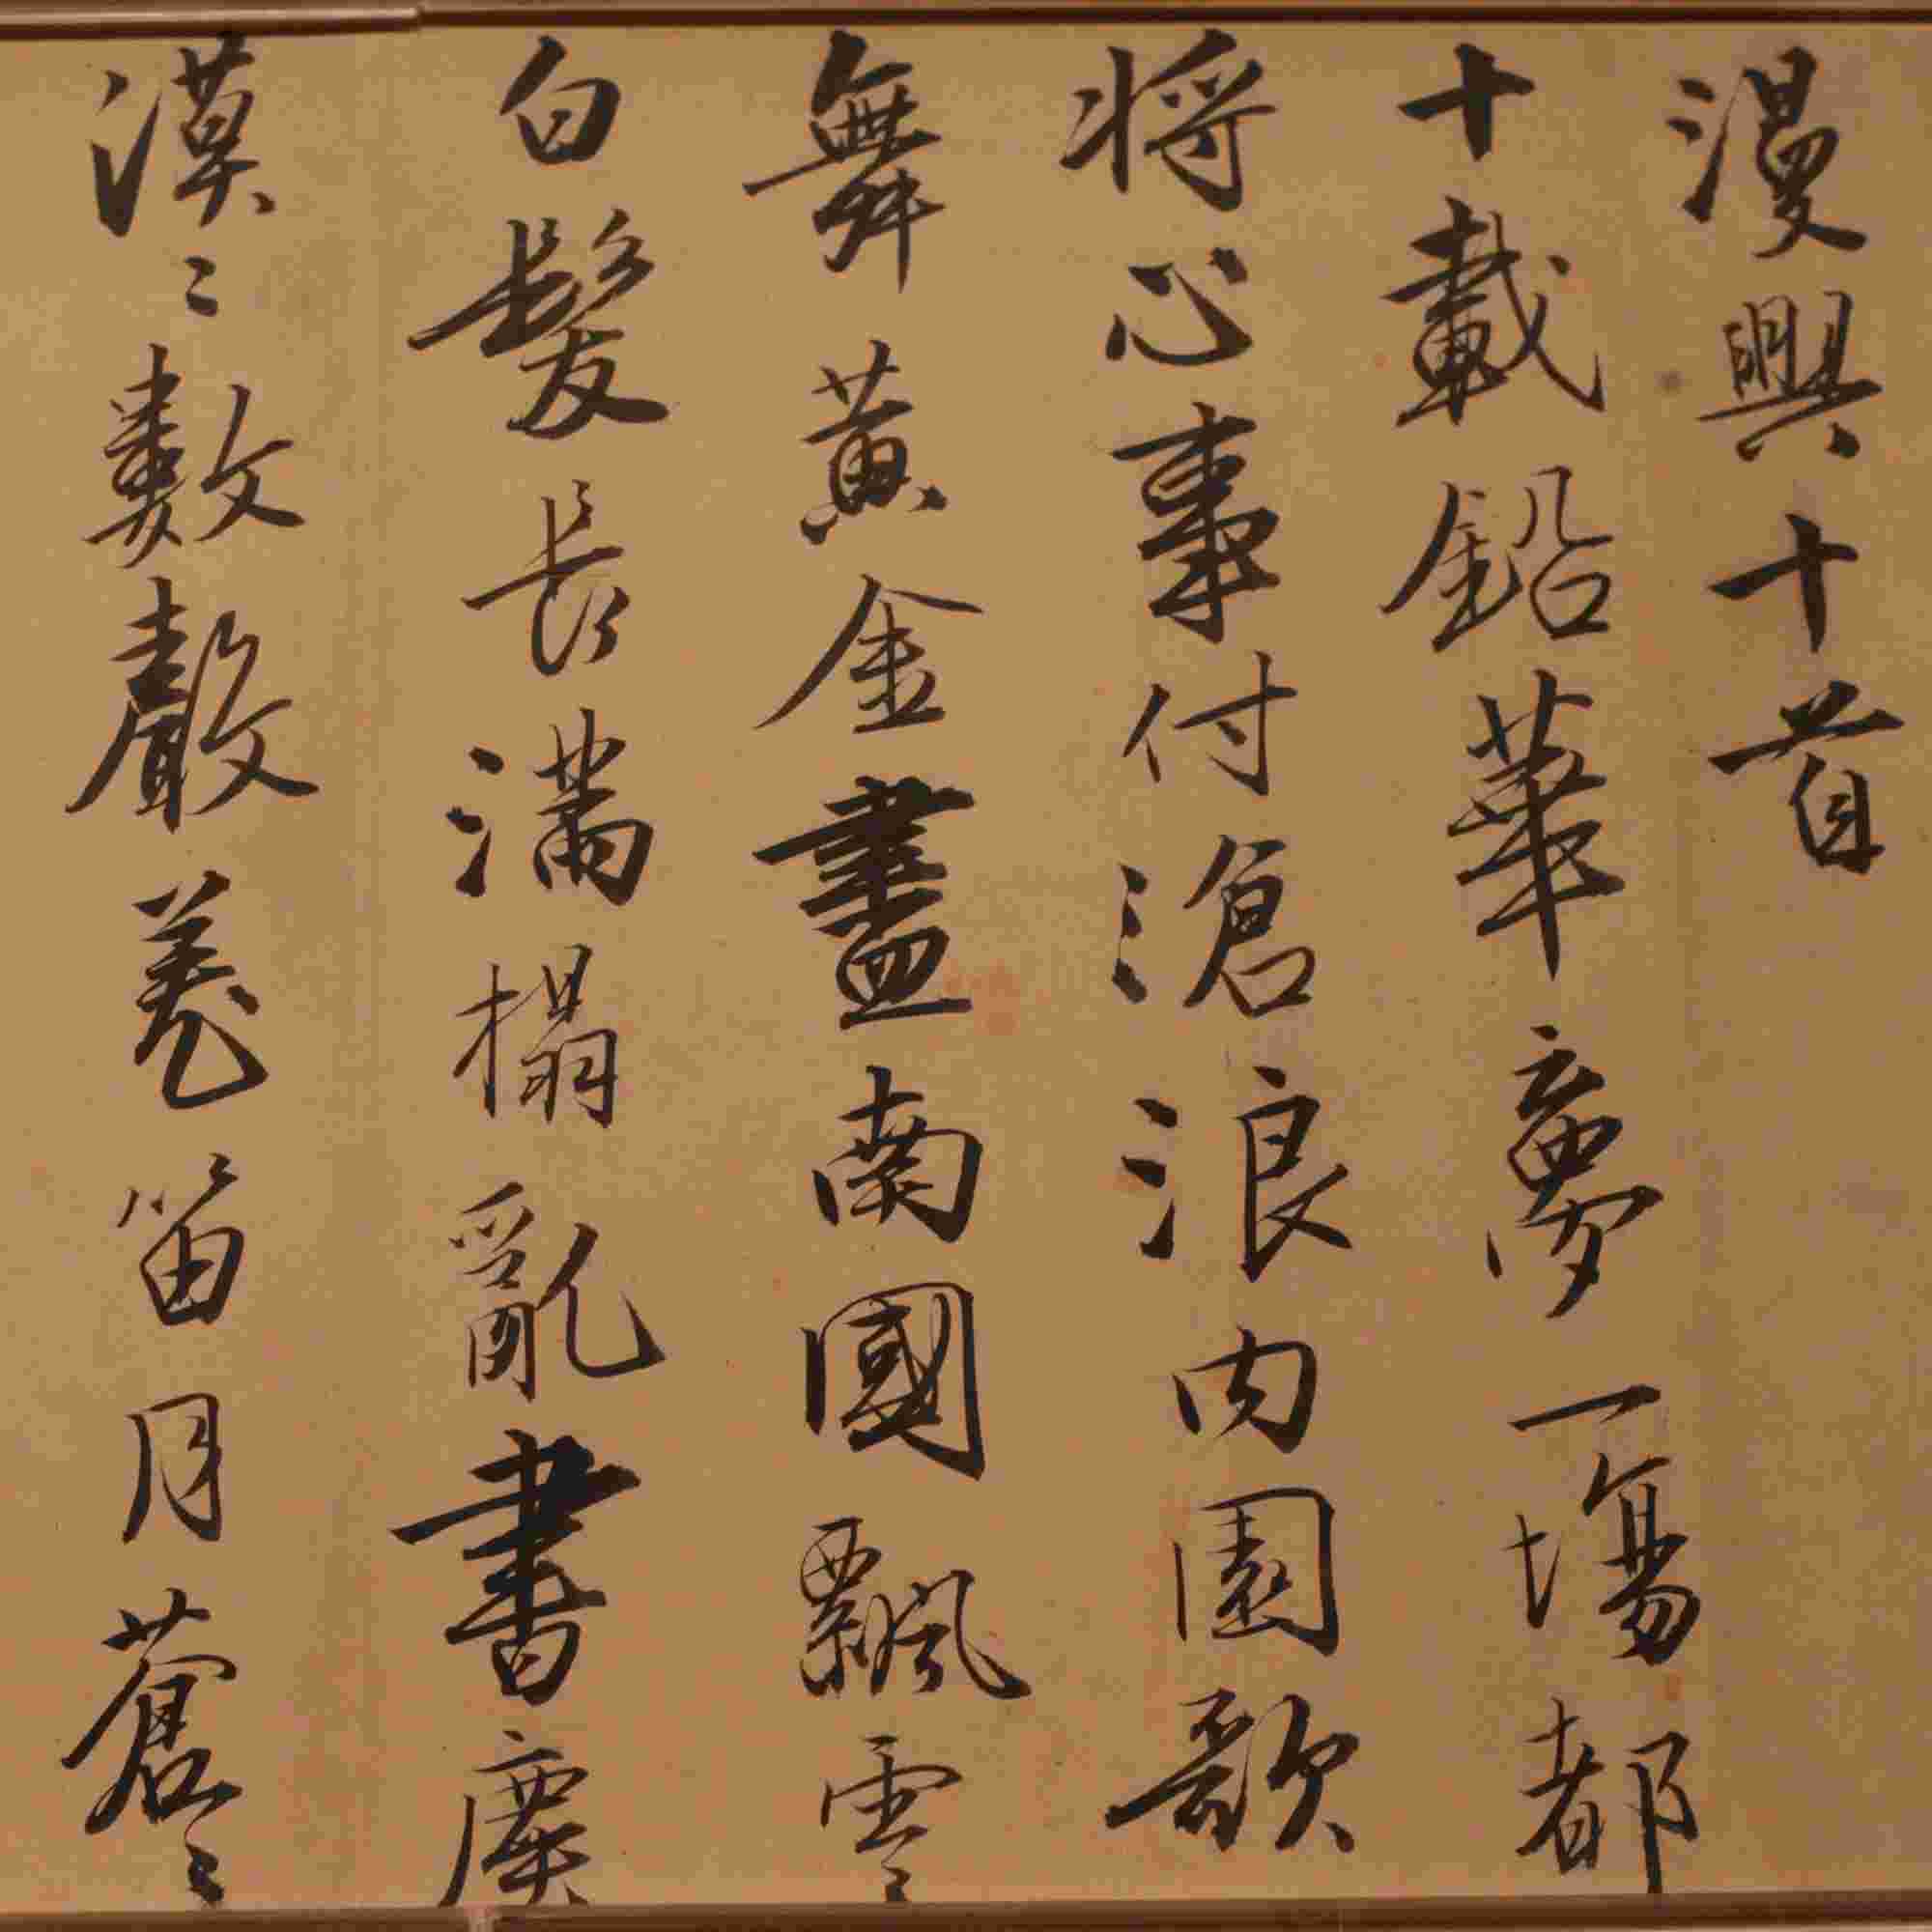 漫興十首
十載鉛華夢一場都
將心事付滄浪内園歌
舞黃金盡南國飄零
白髮長滿榻亂書塵
漠〻數聲羌笛月蒼〻